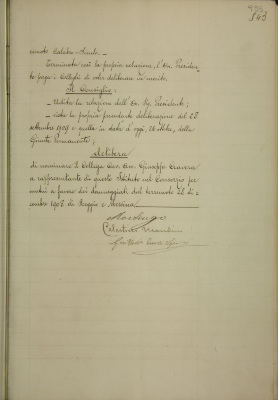 543
remoto Calabro-Siculo.
Terminata così la propria relazione, l'On. Presiden-
te prega i Colleghi di voler deliberare in merito.
Il Consiglio
- Udita la relazione dell'On. Sig. Presidente;
- vista la propria precedente deliberazione del 28
settembre 1909 e quella in data d'oggi, 26 ottobre, della
Giunta Permanente;
delibera
di nominare il Collega Cav. Avv. Giuseppe
a rappresentante di questo Istituto nel Consorzio per
mutui a favore dei danneggiati dal terremoto 28 Di-
cembre 1908 di Reggio e Messina.
Celestino